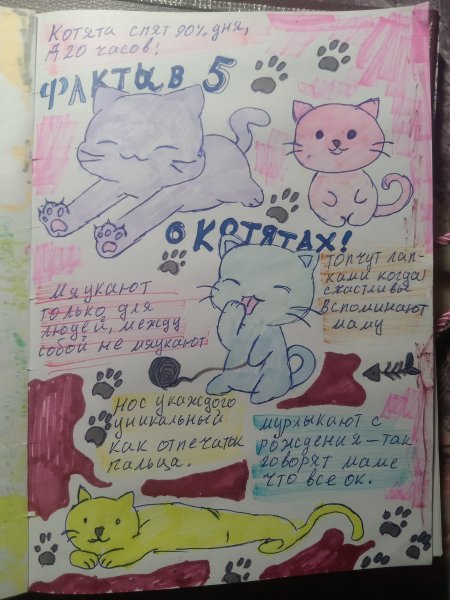 Котята спят 90% дня,
А 20 часов!
ФАКТЫ В 5
О КОТЯТАХ!
Топчут лап-
ками когда
счастливы
Вспоминают
маму
Мяукают
только для
людей, между
собой не мяукают
Нос у каждого
уникальный
как отпечаток
пальца.
Мурлыкают с
рождения — так
говорят маме
что все ок.